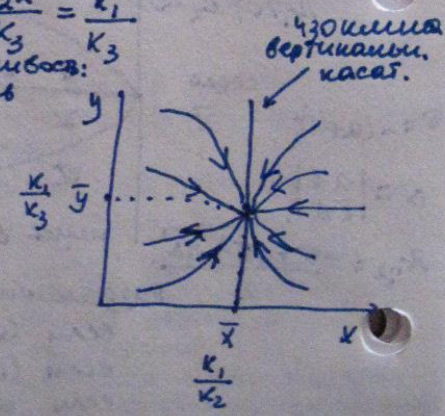 = k₁/k₃
k₃
изоклина
вертикальн.
касат.
y
k₁/k₃ ȳ
x̄ x
k₁/k₂